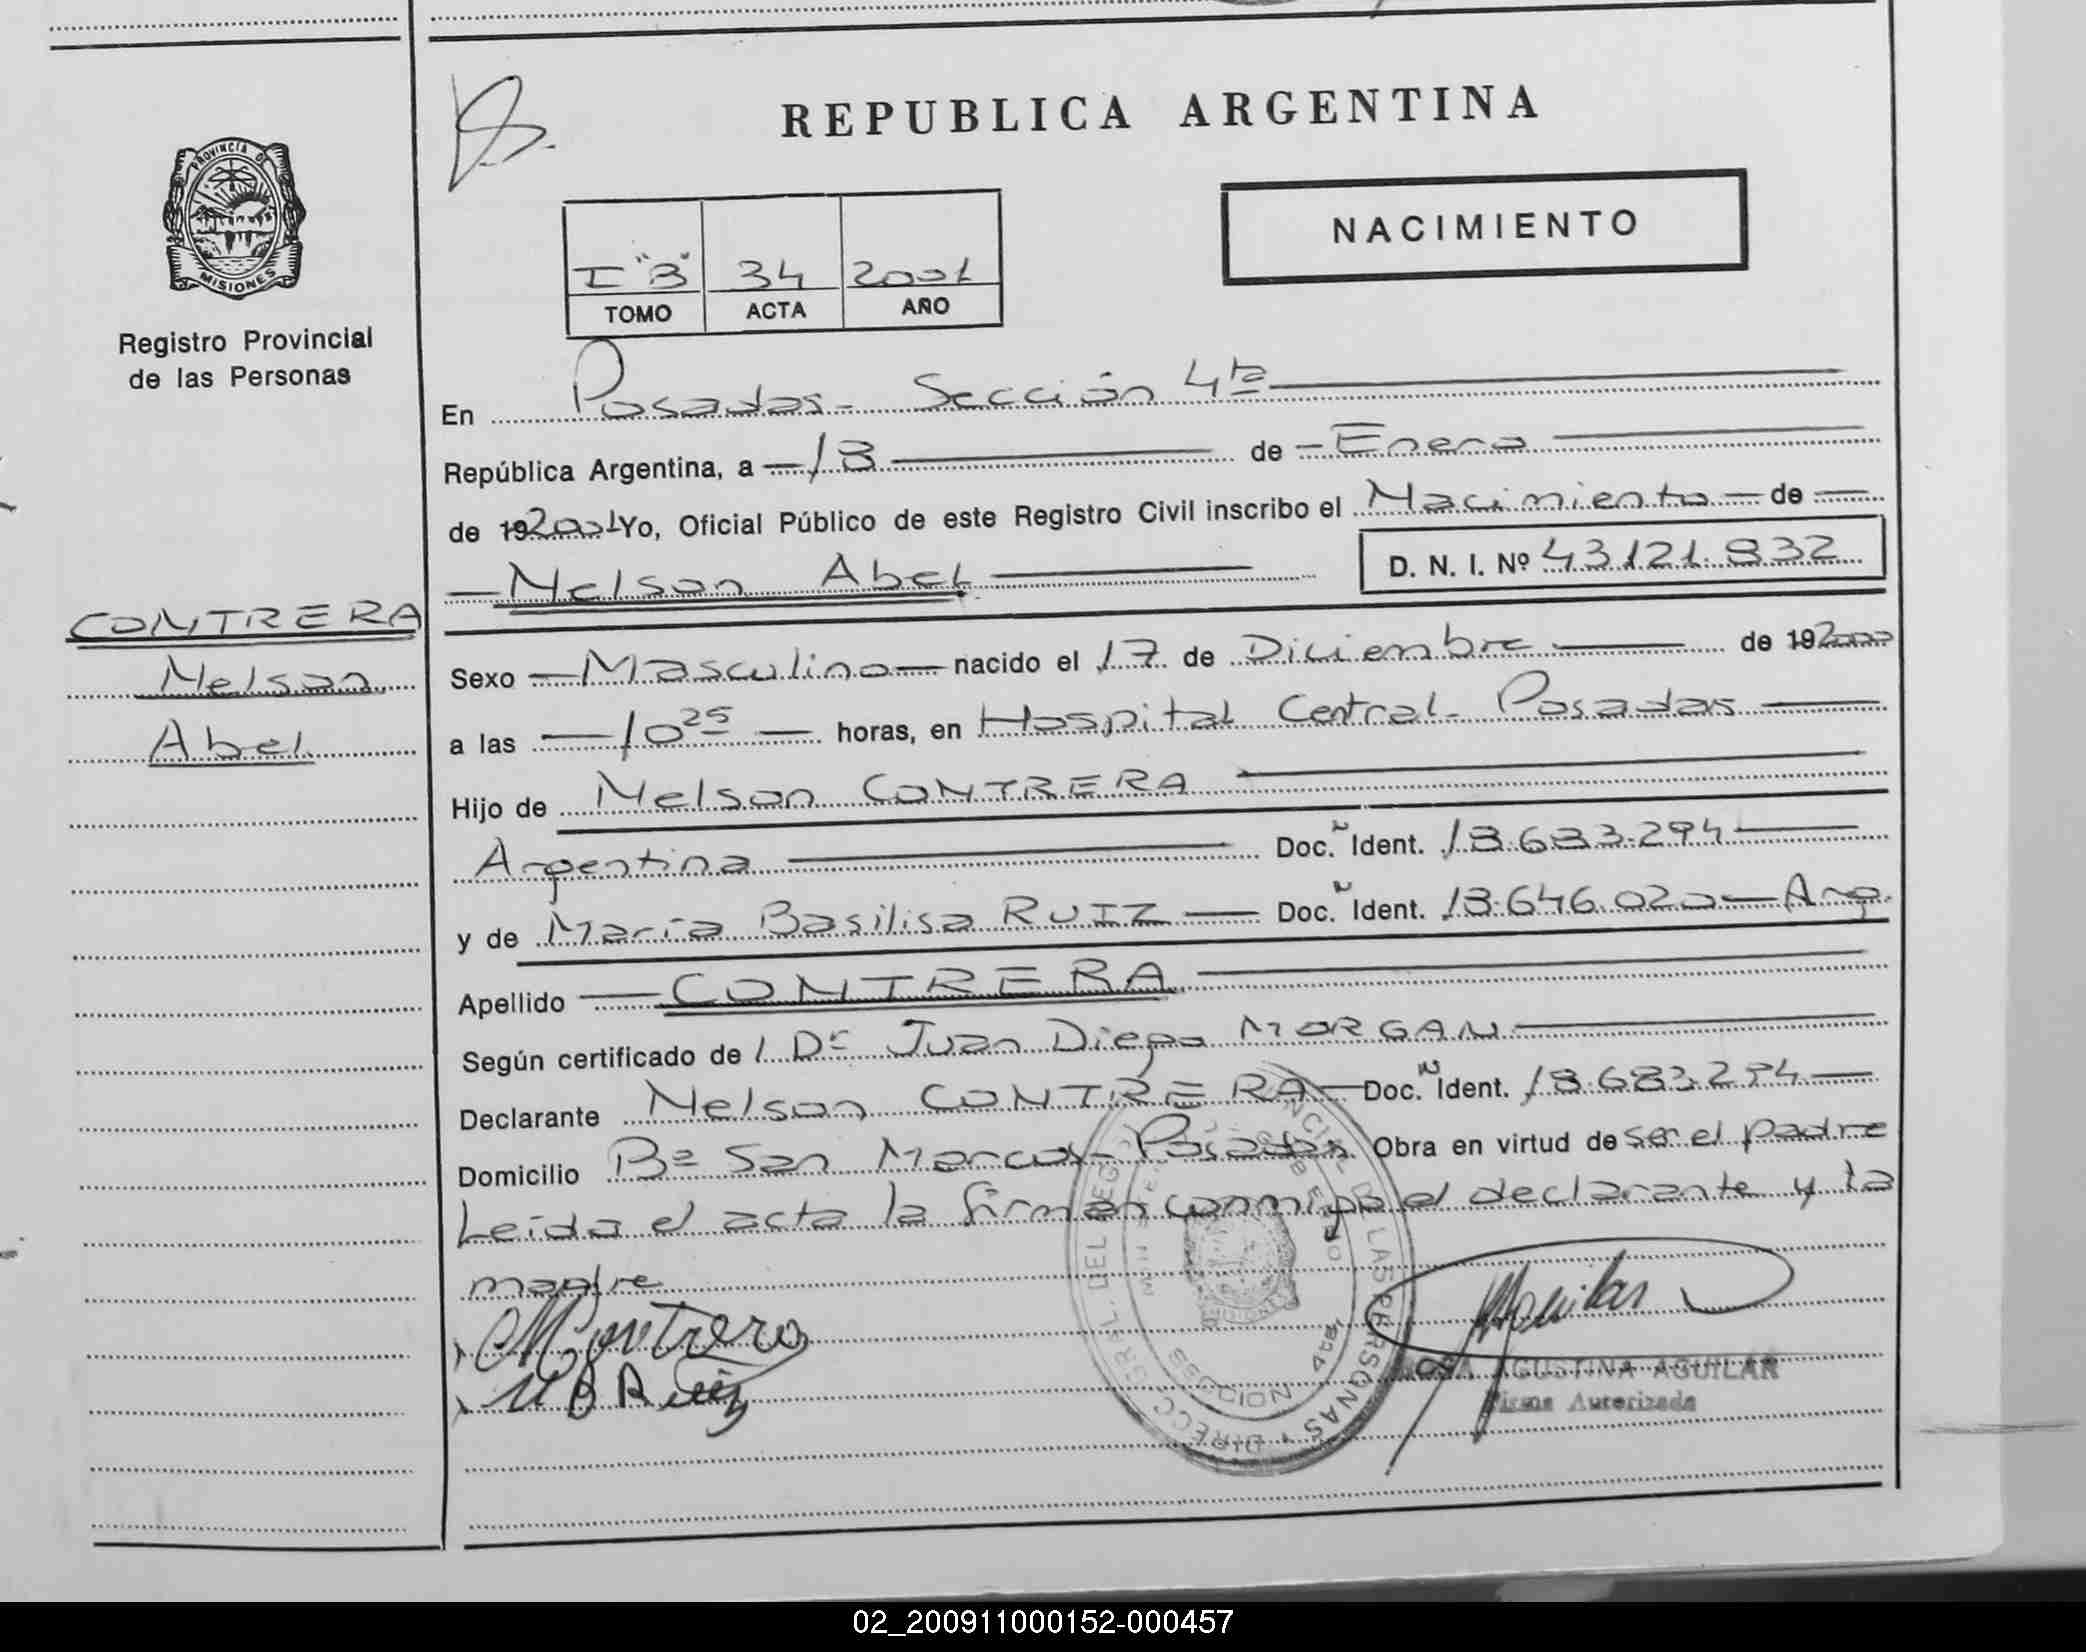 REPUBLICA ARGENTINA
NACIMIENTO
I "B" 34 2001
TOMO ACTA AÑO
PROVINCIA DE
MISIONES
Registro Provincial
de las Personas
CONTRERA
Nelson
Abel
En Posadas - Sección 4ta
República Argentina, a 18 de Enero
de 192001 Yo, Oficial Público de este Registro Civil inscribo el Nacimiento de
Nelson Abel D. N. I. Nº 43.121.832
Sexo Masculino nacido el 17 de Diciembre de 192000
a las 10 25 horas, en Hospital Central - Posadas
Hijo de Nelson CONTRERA
Argentina Doc. N Ident. 18.683.294
y de María Basilisa RUIZ Doc. N Ident. 18.646.020 - Arg.
Apellido CONTRERA
Según certificado de Dr Juan Diego MORGAN
Declarante Nelson CONTRERA Doc. N Ident. 18.683.294
Domicilio Bº San Marcos - Posadas Obra en virtud de ser el padre
Leída el acta la firman conmigo el declarante y la
madre
Contrera
M B Ruiz
Aguilar
AGUSTINA AGUILAR
Firma Autorizada
DIRECC GRL. DEL DE LAS PERSONAS
02_200911000152-000457